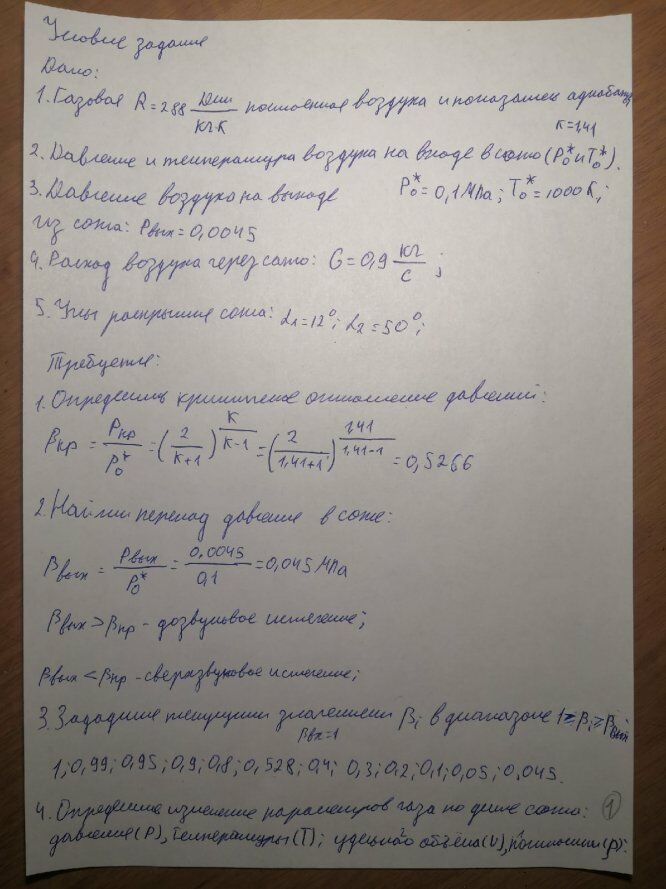 Условие задания
Дано:
1. Газовая R = 288 Дж/кг·К постоянная воздуха и показатель адиабаты
к=1,41
2. Давление и температура воздуха на входе в сопло (P₀* и T₀*).
3. Давление воздуха на выходе P₀* = 0,1 МПа; T₀* = 1000 К;
из сопла: Pвых = 0,0045
4. Расход воздуха через сопло: G = 0,9 кг/с;
5. Углы раскрытия сопла: α₁ = 12°; α₂ = 50°;
Требуется:
1. Определить критическое отношение давлений:
βкр = Pкр/P₀* = (2/(к+1))^(к/(к-1)) = (2/(1,41+1))^(1,41/(1,41-1)) = 0,5266
2. Найти перепад давление в сопле:
βвых = Pвых/P₀* = 0,0045/0,1 = 0,045 МПа
βвых > βкр - дозвуковое истечение;
βвых < βкр - сверхзвуковое истечение;
3. Зададимся текущими значениями βi в диапазоне 1 ≥ βi ≥ βвых
βвх=1
1; 0,99; 0,95; 0,9; 0,8; 0,528; 0,4; 0,3; 0,2; 0,1; 0,05; 0,045.
4. Определение изменение параметров газа по длине сопла: 1
давления (P), температуры (T); удельного объёма (V), плотности (ρ):